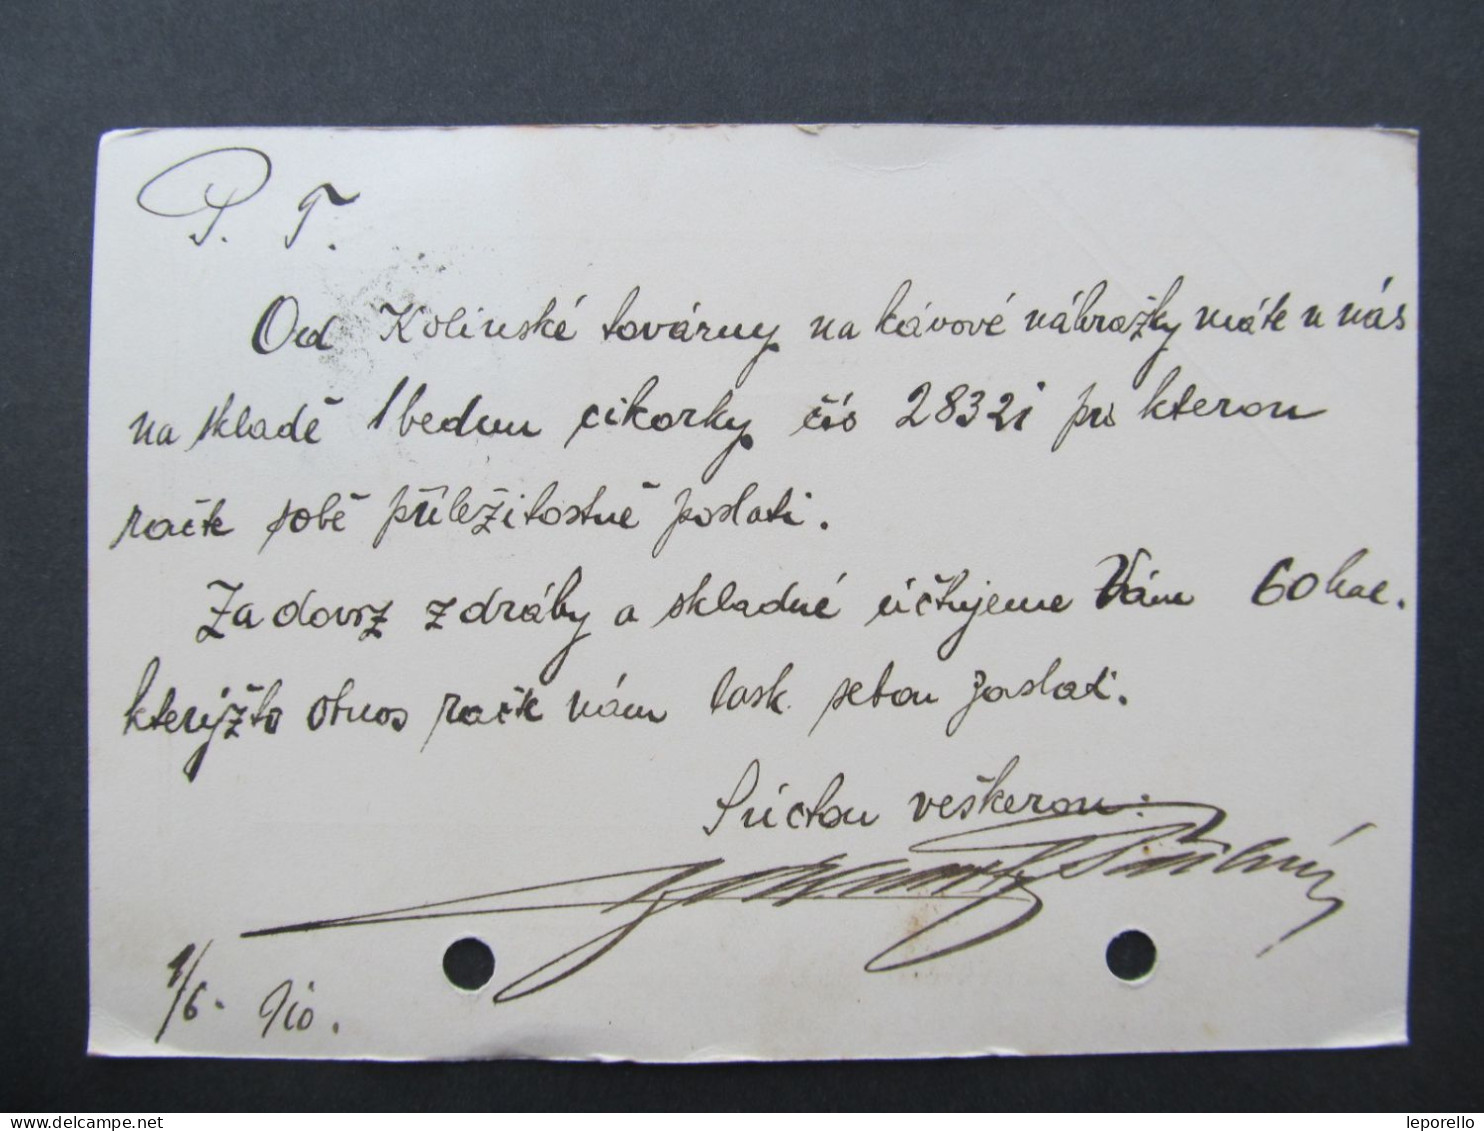 P. T.
Od Kolínské továrny na kávové náhražky máte u nás
na skladě 1 bednu cikorky čís 28321 pro kterou
račte sobě příležitostně poslati.
Za dovoz z dráhy a skladné účtujeme Vám 60 hal.
kterýžto obnos račte nám lask. sebou zaslati.
S úctou veškerou:
1/6. 910.
© www.delcampe.net
leporello